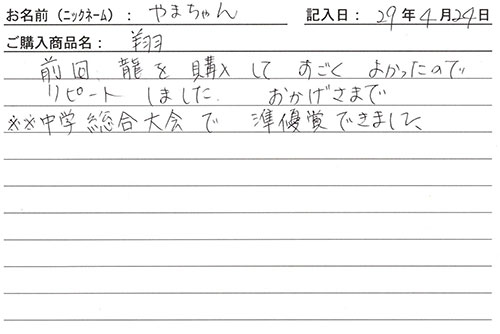 お名前（ニックネーム）： やまちゃん 記入日： 29年4月24日
ご購入商品名： 翔
前回 龍を購入して すごく よかったので
リピート しました. おかげさまで
※※中学 総合大会で 準優賞できました、